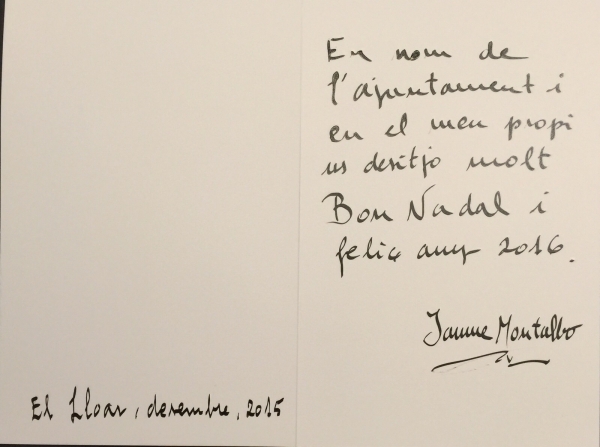 En nom de
l'ajuntament i
en el meu propi
us desitjo molt
Bon Nadal i
feliç any 2016.
Jaume Montalbo
El Lloar, desembre, 2015